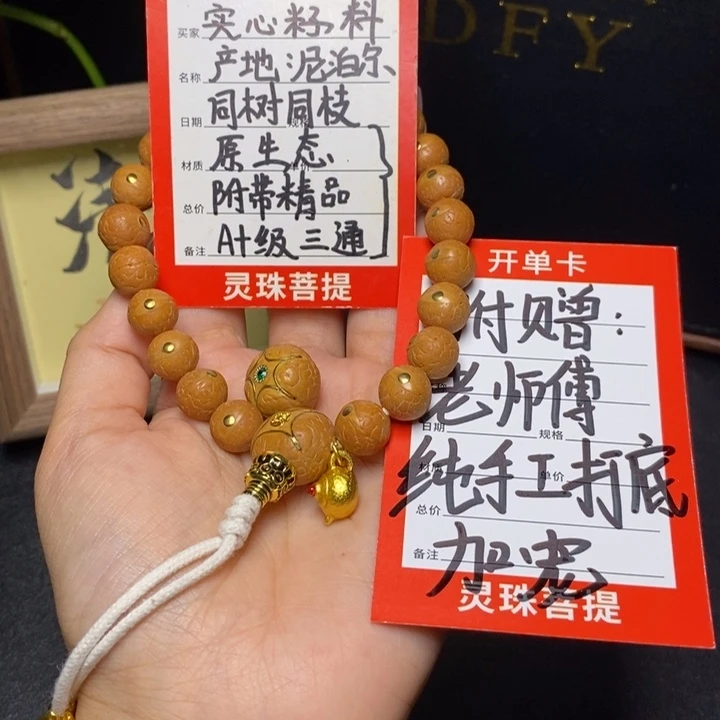 买家 实心籽料
名称 产地:泥泊尔
日期 同树同枝 规格
材质 原生态 单价
总价 附带精品
备注 A+级三通
灵珠菩提
开单卡
附赠:
老师傅
日期 规格
纯手工打底
材质 单价
总价
备注 加宏
灵珠菩提
DFY